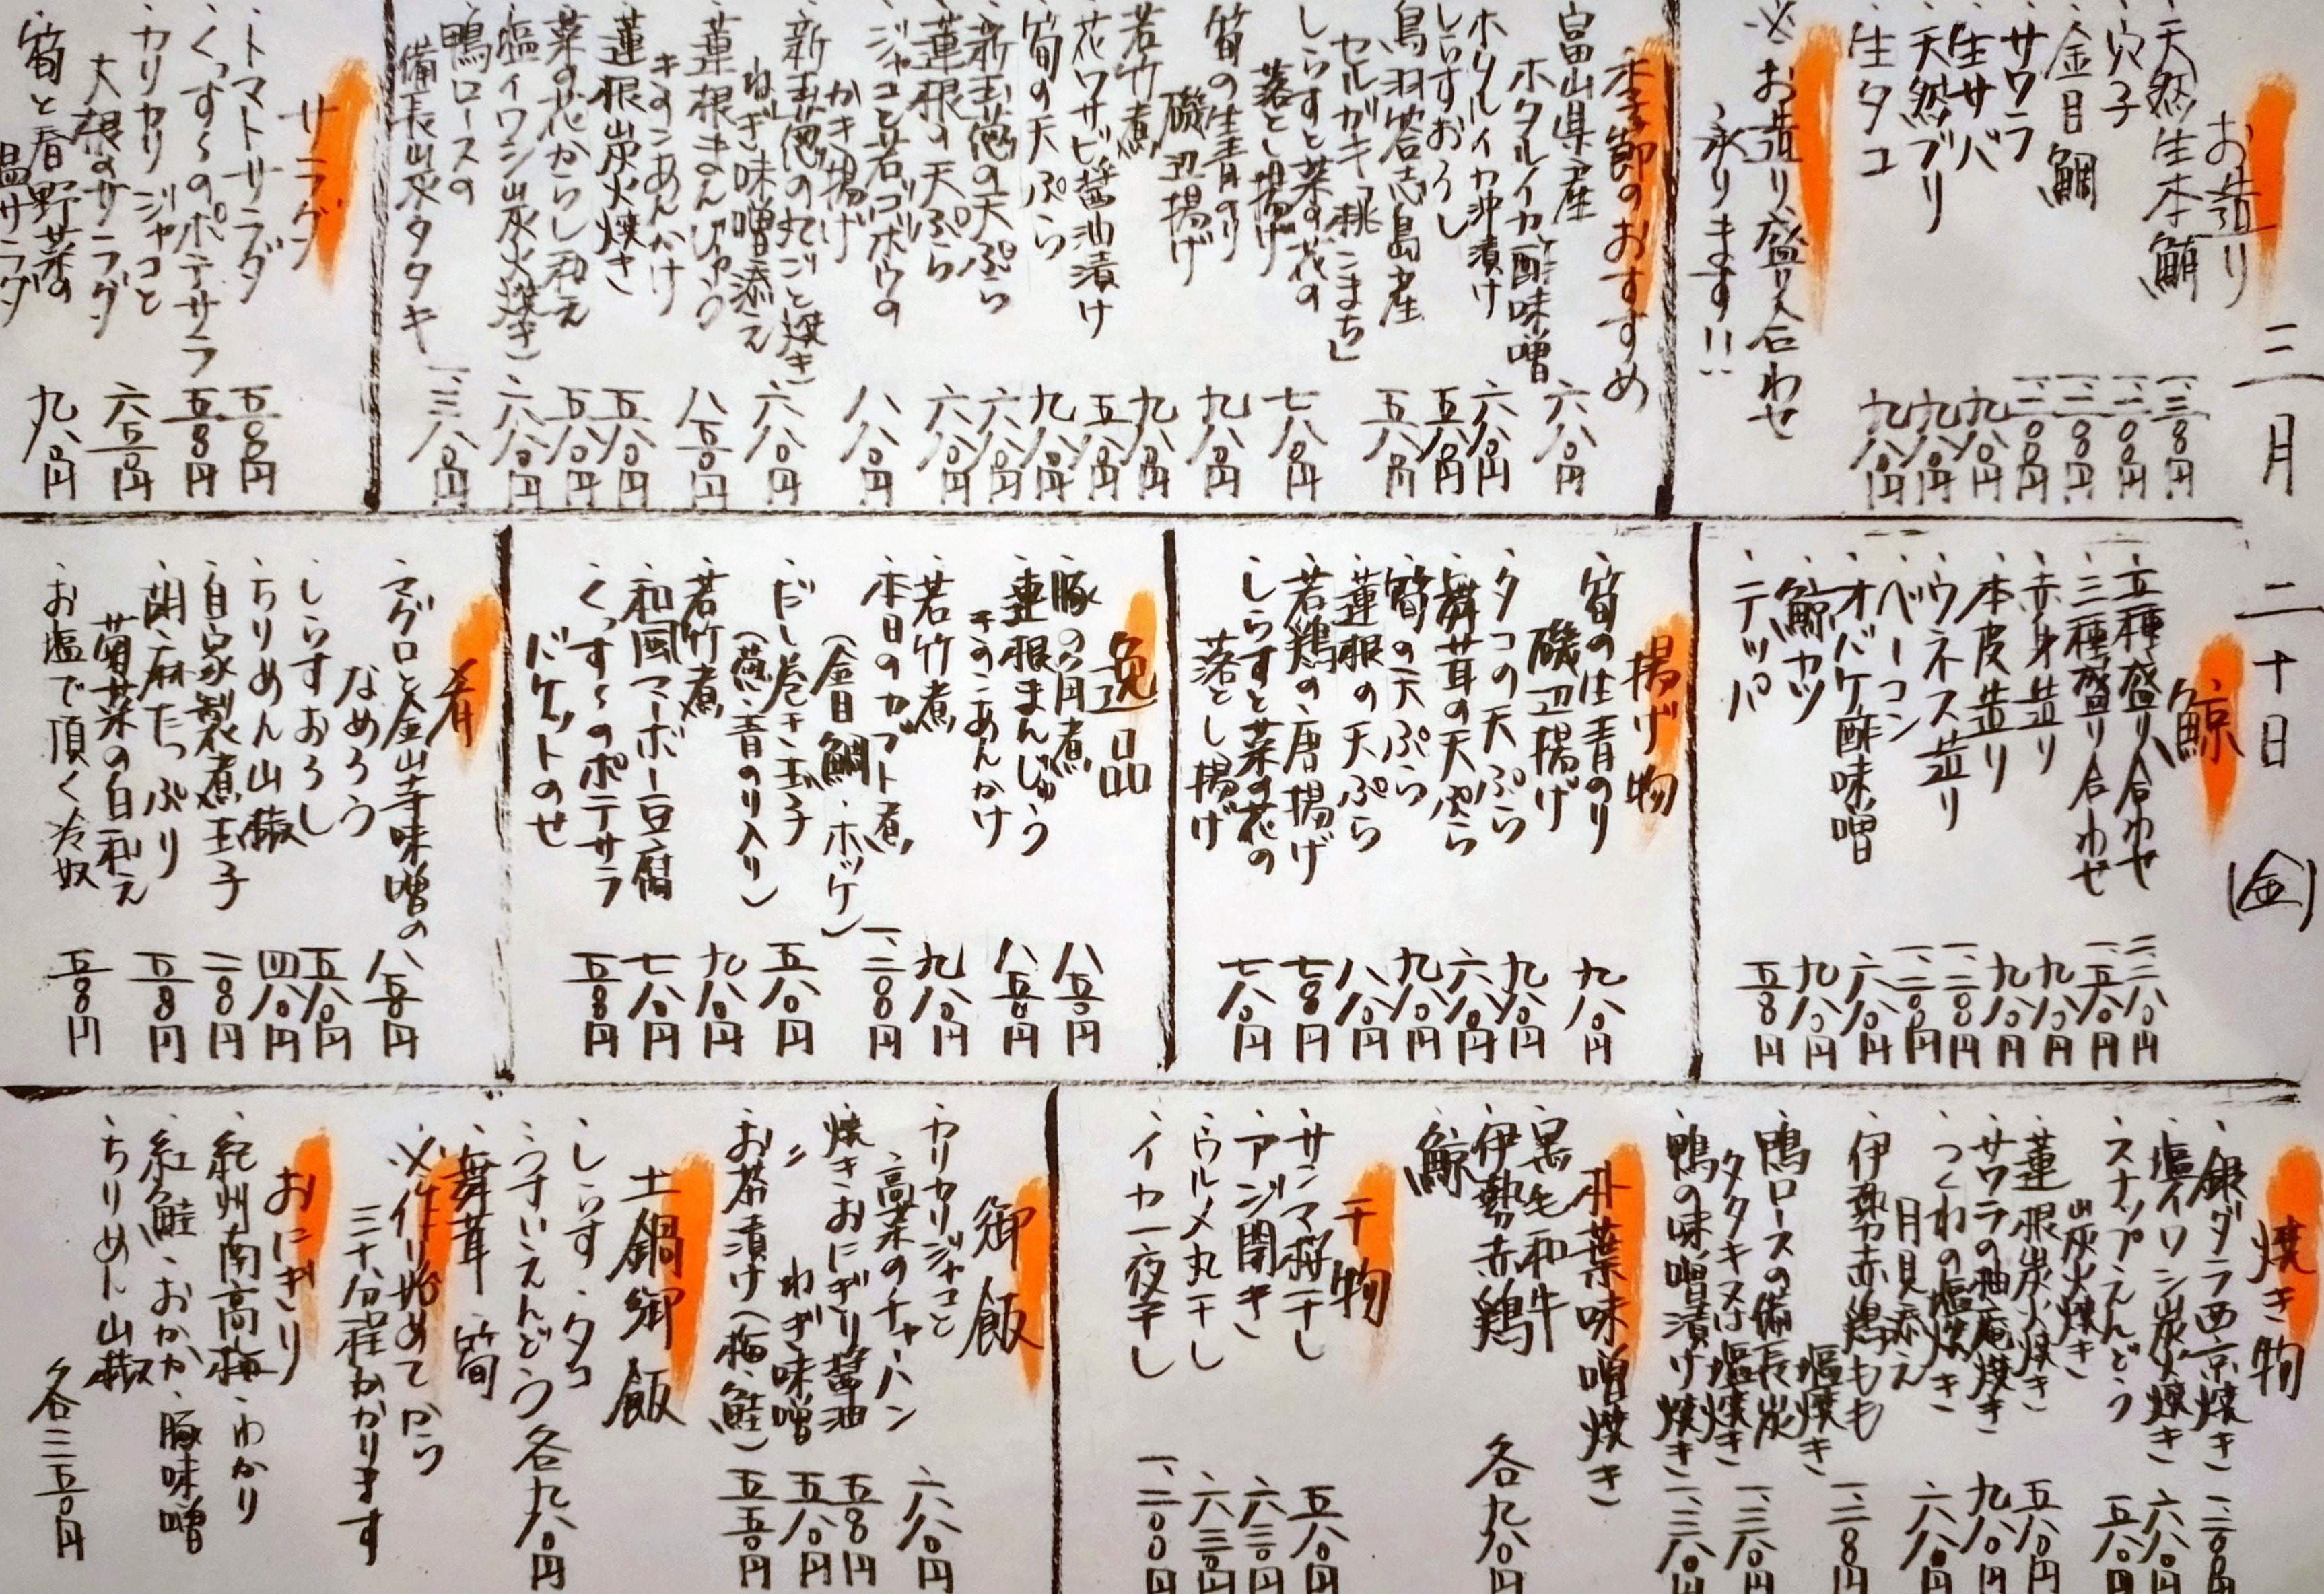 三月二十日(金)
お造り
・天然生本鮪 一、三〇〇円
・穴子 一、二〇〇円
・金目鯛 一、三〇〇円
・サワラ
・生サバ 九八〇円
・天然ブリ 九八〇円
・生タコ 九八〇円
※お造り盛り合わせ
承ります!!
季節のおすすめ
富山県産
ホタルイカ酢味噌 六八〇円
・ホタルイカ沖漬け 六八〇円
・しらすおろし 五八〇円
・鳥羽答志島産
セルガキ「桃こまち」 五八〇円
・しらすと菜の花の
落とし揚げ 七八〇円
・筍の生青のり
磯辺揚げ 九八〇円
・若竹煮 九八〇円
・花ワサビ醤油漬け 五八〇円
・筍の天ぷら 九八〇円
・新玉葱の天ぷら 六八〇円
・蓮根の天ぷら 六八〇円
・ジャコと若ゴボウの
かき揚げ 八八〇円
・新玉葱の丸ごと焼き
ねぎ味噌添え 六八〇円
・蓮根まんじゅう
きのこあんかけ 八五〇円
・蓮根炭火焼き 五八〇円
・菜の花からし和え 五八〇円
・塩イワシ炭火焼き 六八〇円
・鴨ロースの
備長炭タタキ 一、三八〇円
サラダ
・トマトサラダ 五〇〇円
・くっすぅのポテサラ 五〇〇円
・カリカリジャコと
大根のサラダ 六五〇円
・筍と春野菜の
温サラダ 九八〇円
鯨
・五種盛り合わせ
・三種盛り合わせ
・赤身造り 九八〇円
・本皮造り 九八〇円
・ウネス造り 一、二〇〇円
・ベーコン 一、二〇〇円
・オバケ酢味噌 六八〇円
・鯨カツ 九八〇円
・テッパ 五〇〇円
揚げ物
・筍の生青のり
磯辺揚げ 九八〇円
・タコの天ぷら 九八〇円
・舞茸の天ぷら 六八〇円
・筍の天ぷら 九八〇円
・蓮根の天ぷら 八八〇円
・若鶏の唐揚げ 七〇〇円
・しらすと菜の花の
落とし揚げ 七八〇円
逸品
・豚の角煮 八五〇円
・蓮根まんじゅう
きのこあんかけ 八五〇円
・若竹煮 九八〇円
・本日のカブト煮
(金目鯛・ホッケ) 一、二〇〇円
・だし巻き玉子
(葱・青のり入り) 五八〇円
・若竹煮 九八〇円
・和風マーボー豆腐 七八〇円
・くっすぅのポテサラ
バケットのせ 五〇〇円
肴
・マグロと金山寺味噌の
なめろう 八五〇円
・しらすおろし 五八〇円
・ちりめん山椒 四八〇円
・自家製煮玉子 二〇〇円
・胡麻たっぷり
菊菜の白和え 五〇〇円
・お塩で頂く冷奴 五〇〇円
焼き物
・銀ダラ西京焼き
・塩イワシ炭火焼き 六八〇円
・スナップえんどう
炭火焼き 五八〇円
・蓮根炭火焼き 五八〇円
・サワラの油庵焼き 九八〇円
・つくねの塩焼き
月見添え 六八〇円
・伊勢赤鶏もも
塩焼き
・鴨ロースの備長炭
タタキ又は塩焼き 一、三八〇円
・鴨の味噌漬け焼き 一、三八〇円
朴葉味噌焼き
・黒毛和牛
・伊勢赤鶏
・鯨
各九八〇円
干物
・サンマ醤干し 五八〇円
・アジ開き 六三〇円
・ウルメ丸干し 六三〇円
・イカ一夜干し 一、二〇〇円
御飯
・カリカリジャコと
高菜のチャーハン 六八〇円
・焼きおにぎり醤油 五〇〇円
・〃 ねぎ味噌 五八〇円
・お茶漬け(梅・鮭) 五五〇円
土鍋御飯
・しらす・タコ
・うすいえんどう
・舞茸・筍
各九八〇円
※作り始めてから
三十分程かかります
おにぎり
・紀州南高梅・わかり
・紅鮭・おかか・豚味噌
・ちりめん山椒
各三五〇円